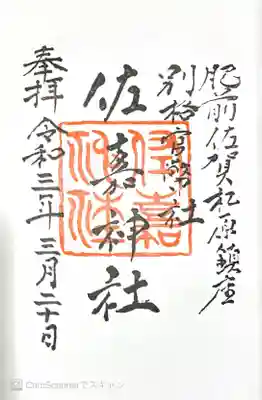 肥前佐賀松原鎮座
別格官幣社
佐嘉神社
奉拝 令和三年三月二十日
CamScannerでスキャン